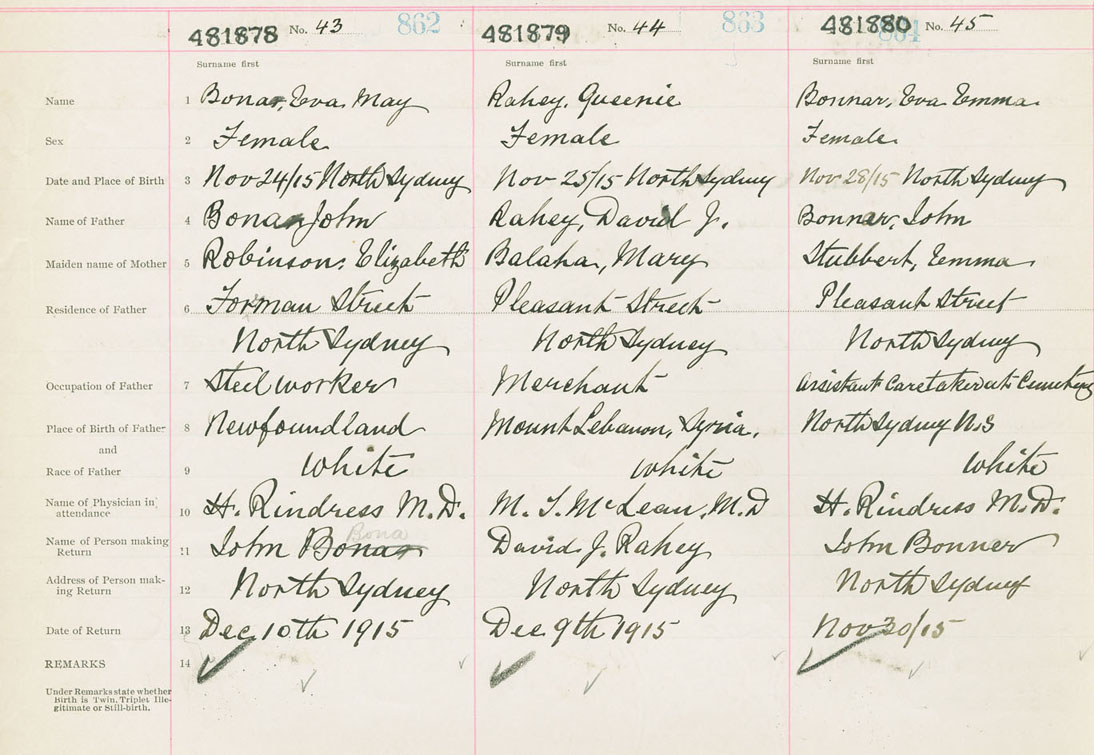 481878 No. 43 862 481879 No. 44 863 481880 No. 45 864
Surname first Surname first Surname first
Name 1 Bonar, Eva May Rahey, Queenie Bonnar, Eva Emma
Sex 2 Female Female Female
Date and Place of Birth 3 Nov 24/15 North Sydney Nov 25/15 North Sydney Nov 28/15 North Sydney
Name of Father 4 Bonar John Rahey, David J. Bonnar, John
Maiden name of Mother 5 Robinson, Elizabeth Balaha, Mary Stubbert, Emma
Residence of Father 6 Forman Street Pleasant Street Pleasant Street
North Sydney North Sydney North Sydney
Occupation of Father 7 Steel worker Merchant Assistant Caretaker at Cemetery
Place of Birth of Father 8 Newfoundland Mount Lebanon, Syria. North Sydney N.S
and
Race of Father 9 White White White
Name of Physician in attendance 10 H. Rindress M.D. M. T. McLean, M.D H. Rindress M.D.
Bona
Name of Person making Return 11 John Bonar David J. Rahey John Bonner
Address of Person making Return 12 North Sydney North Sydney North Sydney
Date of Return 13 Dec 10th 1915 Dec 9th 1915 Nov 30/15
REMARKS 14
Under Remarks state whether
Birth is Twin, Triplet Ille-
gitimate or Still-birth.